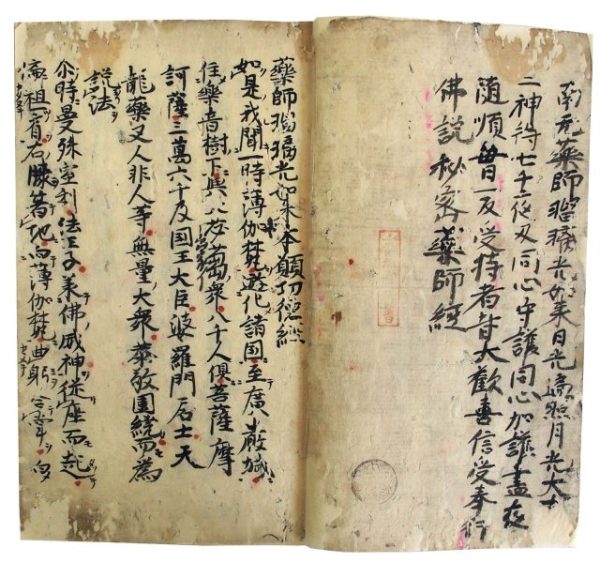 南无藥師瑠璃光如来日光遍照月光大士
二神将七千夜叉同心守護同心加護盡夜
随順毎日一反受持者皆大歡喜信受奉行
佛説秘密藥師經
藥師瑠璃光如来本願功德經
如是我聞一時薄伽梵遊化諸国至廣嚴城
住樂音樹下與大苾蒭衆八千人倶菩薩摩
訶薩三萬六千及国王大臣婆羅門居士天
龍藥叉人非人等無量大衆恭敬圍繞而為
説法
尒時曼殊室利法王子承佛威神従座而起
偏袒一肩右膝著地向薄伽梵曲躬合掌白